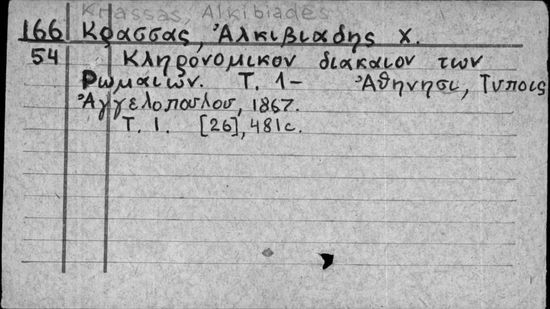 Krassas, Alkibiades
166 Κρασσας, Ἀλκιβιαδης Χ.
54 Κληρονομικον διακαιον των
Ρωμαιων. Τ. 1- Ἀθηνησι, Τυποις
Ἀγγελοπουλου, 1867.
Τ. 1. [26], 481 c.